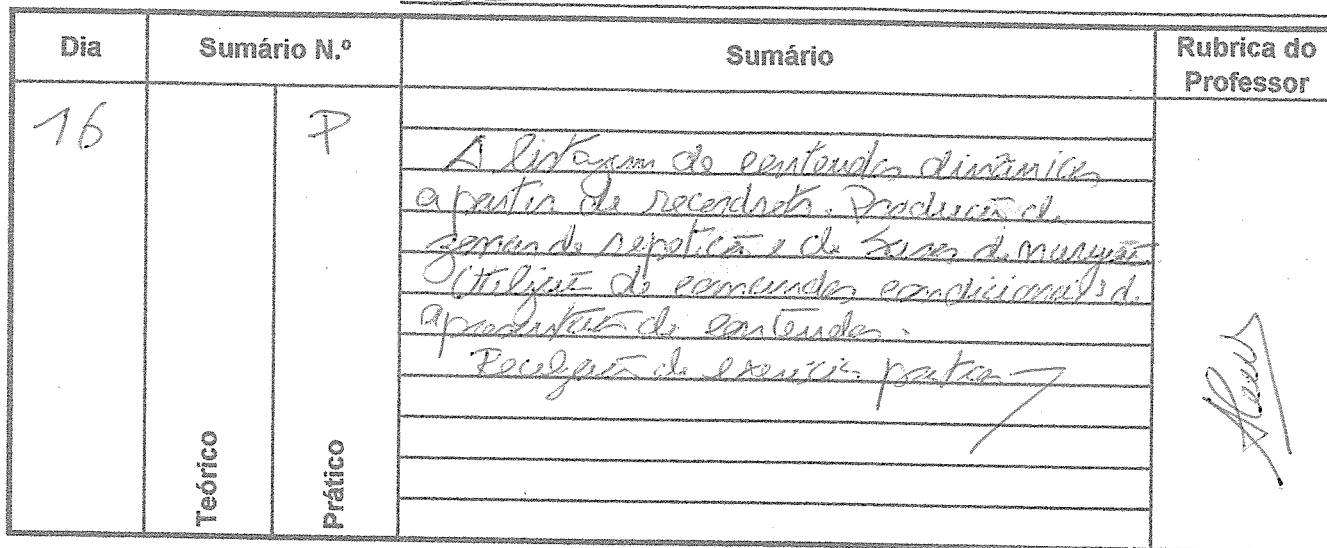 Dia Sumário N.º Sumário Rubrica do Professor
16 P
Teórico Prático
A listagem de conteudos dinâmicos
a partir de recordsets. Produção de
zonas de repetição e de barras de navegação
Utilização de comandos condicionais de
apresentação de conteudos.
Realização de exercícios práticos